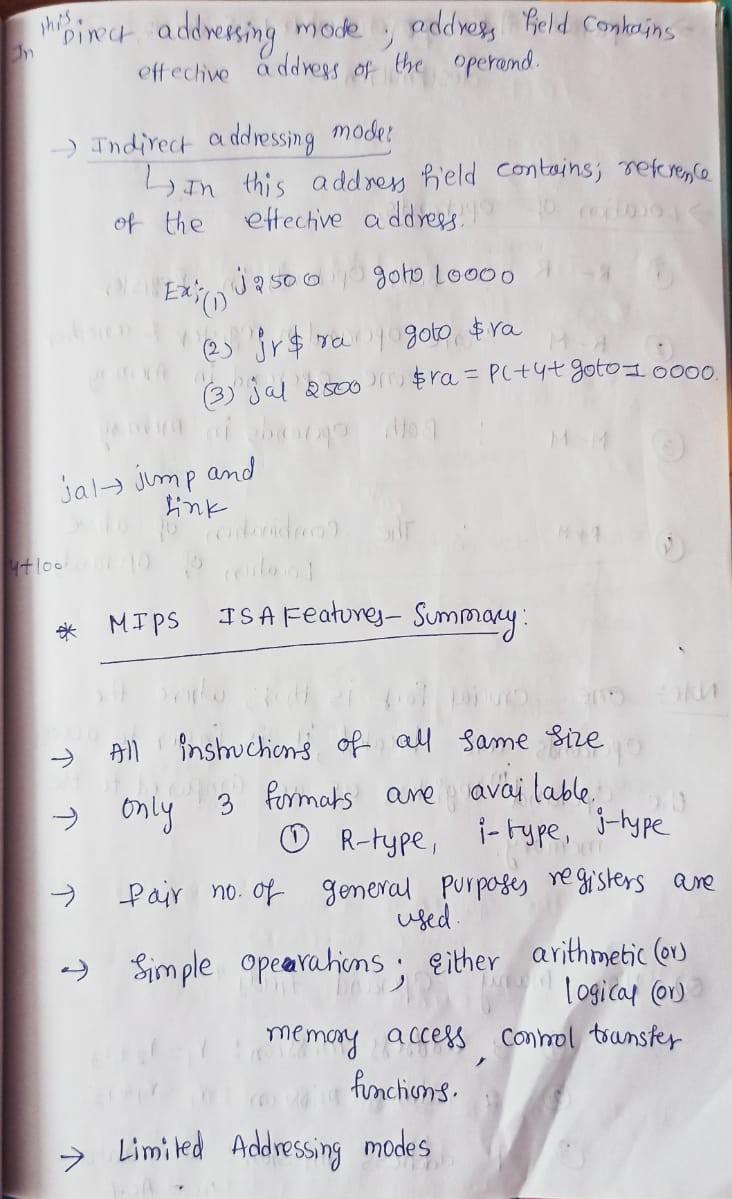 In this Direct addressing mode; address field contains
effective address of the operand.
→ Indirect addressing mode:
↳ In this address field contains; reference
of the effective address.
Ex:- (1) j 2500 goto 10000
(2) jr $ ra goto $ra
(3) jal 2500 $ra = PC+4+ goto 10000.
jal → jump and
link
4+100
* MIPS ISA Features - Summary:
→ All instructions of all same size
→ only 3 formats are available.
① R-type, i-type, j-type
→ Fair no. of general purposes registers are
used.
→ Simple opearations; Either arithmetic (or)
logical (or)
memory access, control transfer
functions.
→ Limited Addressing modes